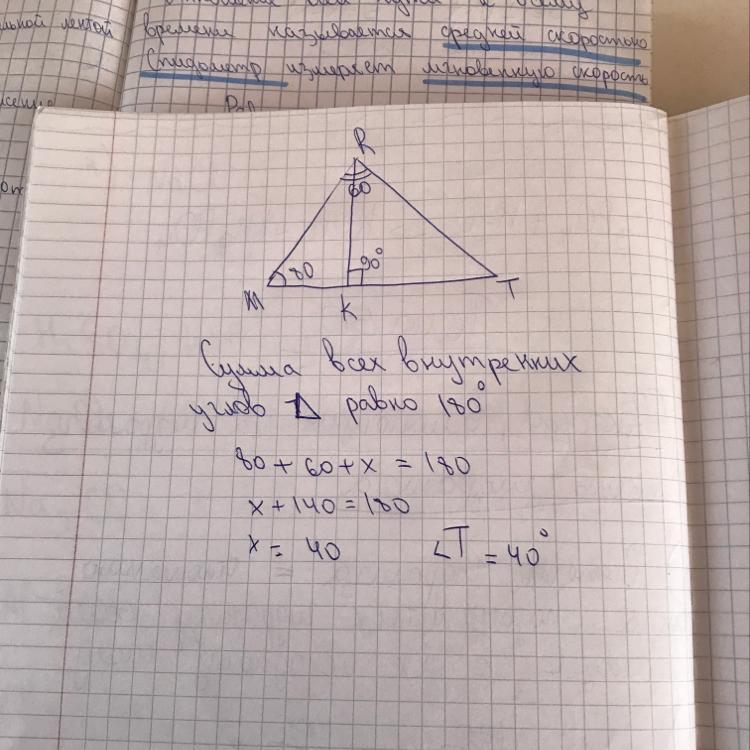 льной лентой
времени называется средней скоростью
Спидометр измеряет мгновенную скорость
R
60
80
90°
M
K
T
Сумма всех внутренних
углов Δ равно 180°
80 + 60 + x = 180
x + 140 = 180
x = 40 ∠T = 40°